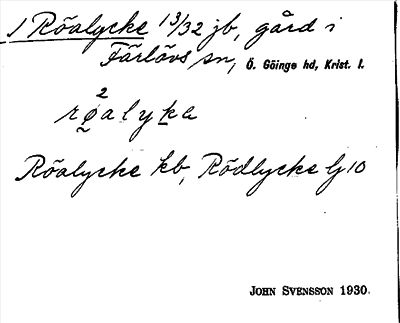 1 Röalycke 13/32 jb, gård i
Färlövs sn, Ö. Göinge hd, Krist. l.
2
rø̰alyḵa
Röalycke kb, Rödlycke Lj 10
JOHN SVENSSON 1930.